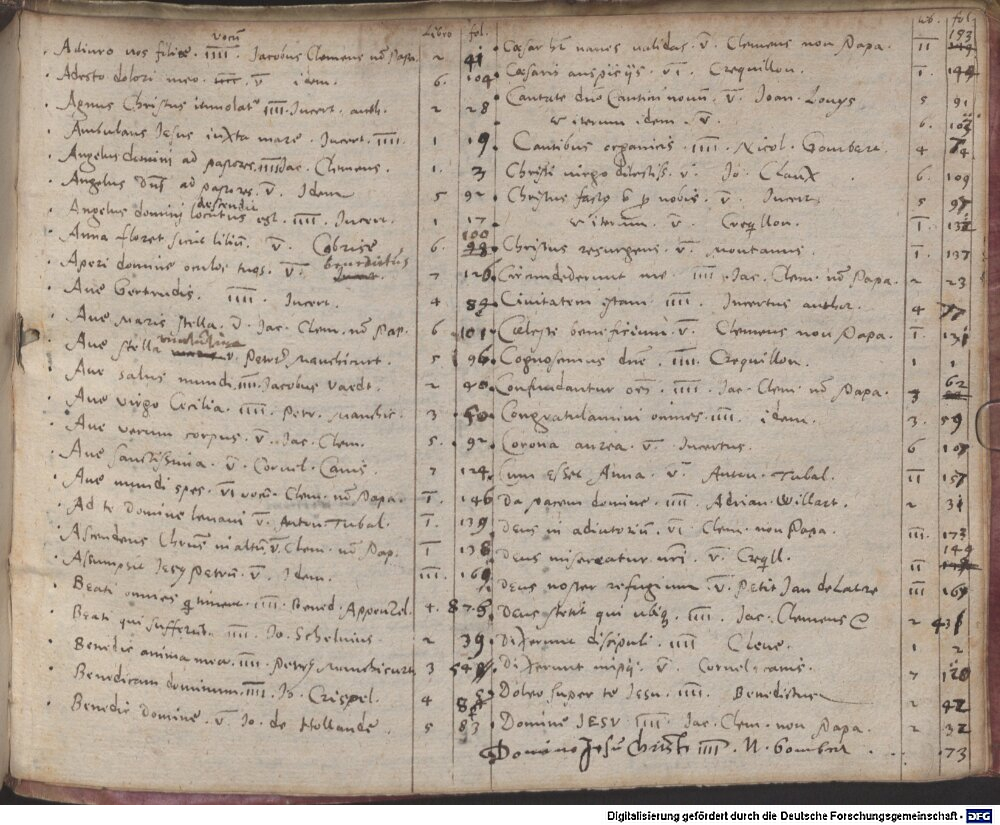 vocū Libro fol.
Adiuro vos filiae. IIII. Jacobus Clemens nō Papa 2 41
Adesto dolori meo. v̄ idem. 6. 104
Agnus Christus imolat9 IIII. Incert. auth. 2 28
Ambulans Jesus iuxta mare. Incert. IIII. 1 19
Angelus domini ad pastores. IIII Jac. Clemens. 1. 3
Angelus Dn̄s ad pastores. v̄. Idem 5 92
Angelus domini locutus est. IIII. Incert. 1 17
descendit
Anna floret sicut lilium. v̄. Cobrise 6. 100
Aperi domine oculos tuos. v̄. benedictus 7 126
Ave Gertrudis. IIII. Incert. 4 84
Ave Maris stella. v̄. Jac. Clem. nō Pap. 6 101
Ave stella v. Petrg Manchicurt. 5 96
Ave salus mundi. IIII. Jacobus Vaedt. 2 40
Ave virgo Cecilia. IIII. Petr. Manchic. 3 50
Ave verum corpus. v̄. Jac. Clem. 5. 92
Ave sanctissima. v̄. Cornel. Canis. 7 124
Ave mundi spes. VI vocū. Clem. nō Papa. I. 146
Ad te Domine levavi v̄. Anton Tubal. I. 139
Ascendens Chrus in altū v̄. Clem. nō Pap. I 138
Assumpsit Jesg Petrum v̄. Idem. III. 169
Beati omnes q timent. IIII. Bened. Appenzel. 4. 87
Beati qui sufferūt. IIII. Jo. Schelnius 2 39
Benedic anima mea. IIII. Petrg Manchicurt. 3 54
Benedicam dominum. IIII. Jo. Crispel. 4
Benedic Domine. v̄. Jo. de Hollande 5 83
lib. fol
Caesar ht naves validas. v̄. Clemens non Papa. II 153
Caesaris auspicijs. VI. Crequillon. I. 144
Cantate dn̄o Canticū novū. v̄. Joan. Louys 5 91
v iterum idem. v̄. 6. 102
Cantibus organicis. IIII. Nicol. Gombert. 4 74
Christi virgo dilectiss. v. Jo. Claux 6. 109
Christus factg ē p nobis. v̄. Incert. 5 97
v iterum. v̄. Creqllon. I. 132
Christus resurgens. v̄. Montanus I. 137
Circumdederunt me. IIII. Jac. Clem. nō Papa. 2 23
Civitatem istam. IIII. Incertus author. 4 77
Caelesti beneficium. v̄. Clemens non Papa. I 131
Cognoscimus dn̄e. IIII. Crequillon. 1 1
Confundantur oēs. IIII. Jac. Clem. nō Papa. 3 62
Congratulamini omnes. IIII. idem. 3. 59
Corona aurea. v̄. Incertus. 6 107
Cum esset Anna. v̄ Anton. Tubal. II 157
Da pacem domine. IIII. Adrian. Willart. 2 31
Deus in adiutoriū. VI Clem. non Papa. III. 173
Deus misereatur nr̄i. v̄. Creqll. II 149
Deus noster refugium. v̄. Petit Jan de Latre III 169
Deus stetit qui ubiq. IIII. Jac. Clemens 2 43
Dixerunt discipuli. IIII Cleve. 1 2
Dixerunt impij. v̄. Cornel9 canis. 7 120
Doleo super te Jesu. IIII. Benedictus 2 42
Domine JESV IIII Jac. Clem. non Papa. 2 32
Domine Jesu Christe IIII. N. Gombert. 73
Digitalisierung gefördert durch die Deutsche Forschungsgemeinschaft - DFG